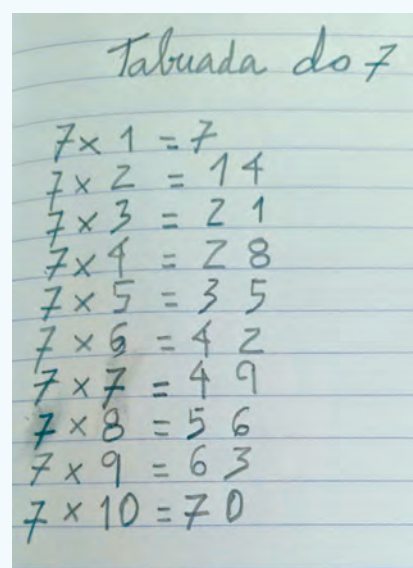 Tabuada do 7
7 x 1 = 7
7 x 2 = 14
7 x 3 = 21
7 x 4 = 28
7 x 5 = 35
7 x 6 = 42
7 x 7 = 49
7 x 8 = 56
7 x 9 = 63
7 x 10 = 70